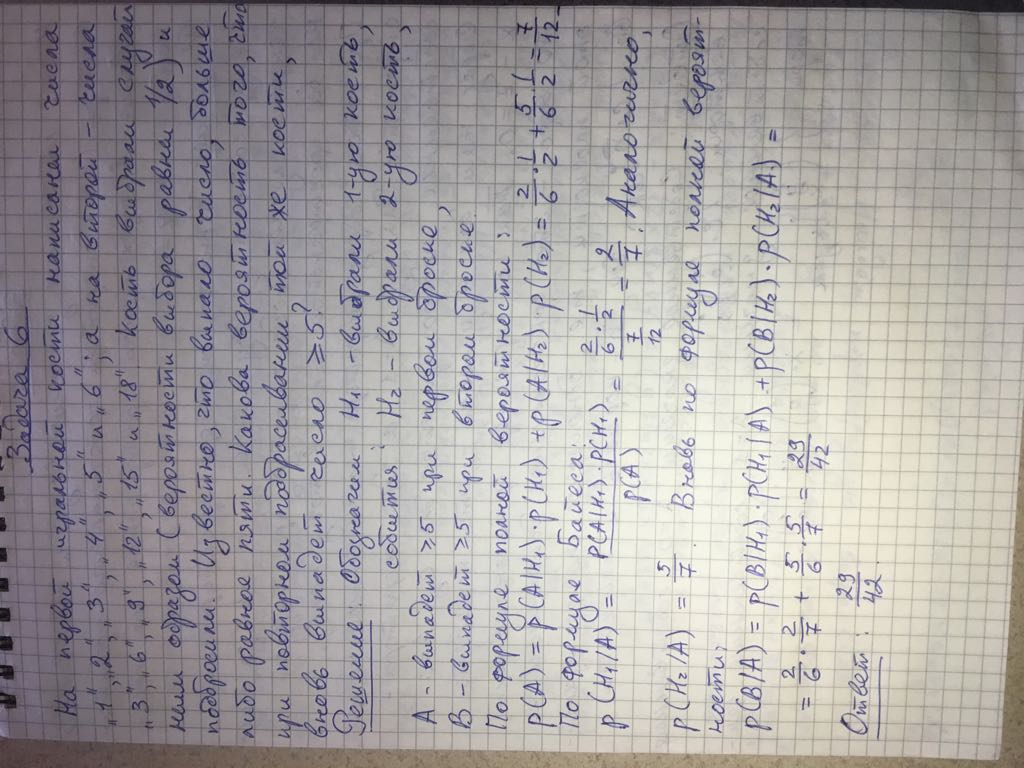 Задача 6
На первой игральной кости написаны числа
„1", „2", „3", „4", „5" и „6"; а на второй – числа
„3", „6", „9", „12", „15" и „18". Кость выбрали случай-
ным образом (вероятности выбора равны 1/2) и
подбросили. Известно, что выпало число, больше
либо равное пяти. Какова вероятность того, что
при повторном подбрасывании той же кости,
вновь выпадет число ≥ 5?
Решение: Обозначим H₁ - выбрали 1-ую кость,
события: H₂ - выбрали 2-ую кость,
A - выпадет ≥5 при первом броске,
B - выпадет ≥5 при втором броске.
По формуле полной вероятности:
P(A) = P(A|H₁)·P(H₁) + P(A|H₂)·P(H₂) = 2/6 · 1/2 + 5/6 · 1/2 = 7/12.
По формуле Байеса:
P(H₁|A) = P(A|H₁)·P(H₁) / P(A) = (2/6 · 1/2) / (7/12) = 2/7. Аналогично,
P(H₂|A) = 5/7. Вновь по формуле полной вероят-
ности:
P(B|A) = P(B|H₁)·P(H₁|A) + P(B|H₂)·P(H₂|A) =
= 2/6 · 2/7 + 5/6 · 5/7 = 29/42
Ответ: 29/42.